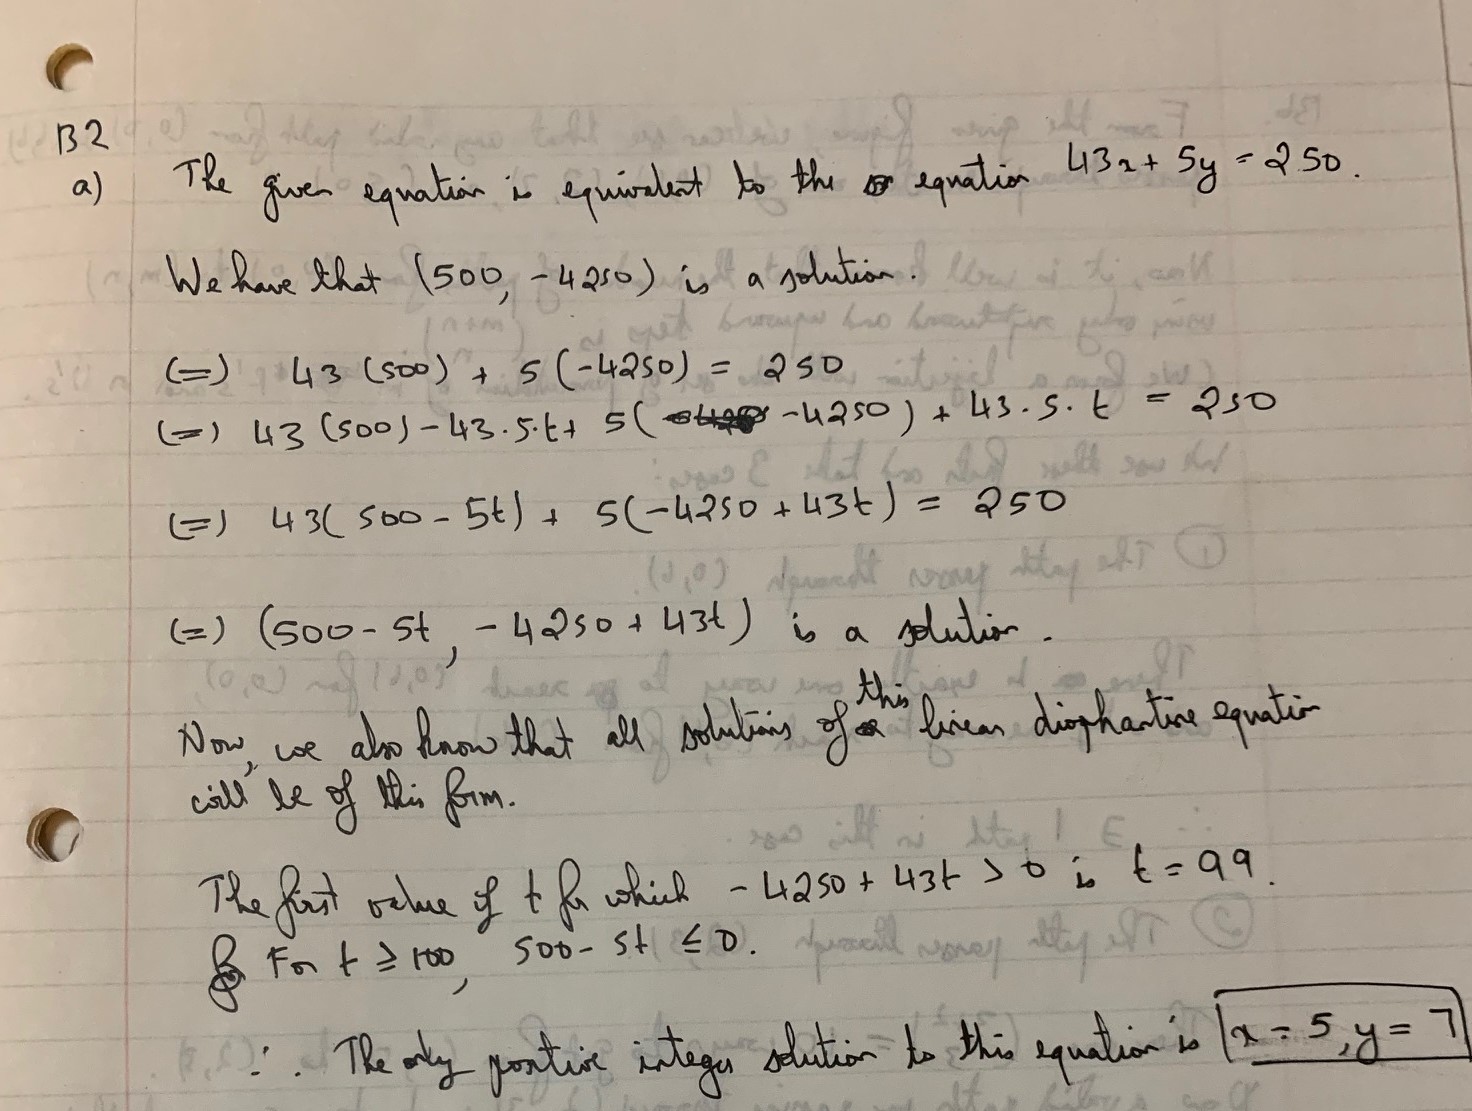 B2
a) The given equation is equivalent to the equation 43x + 5y = 250.
We have that (500, -4250) is a solution.
(=) 43 (500) + 5 (-4250) = 250
(=) 43 (500) - 43.5.t + 5( -4250) + 43.5.t = 250
(=) 43( 500 - 5t) + 5(-4250 + 43t) = 250
(=) (500 - 5t, -4250 + 43t) is a solution.
Now, we also know that all solutions of this linear diophantine equation
will be of this form.
The first value of t for which -4250 + 43t > 0 is t = 99.
For t ≥ 100, 500 - 5t ≤ 0.
∴ The only positive integer solution to this equation is x = 5, y = 7